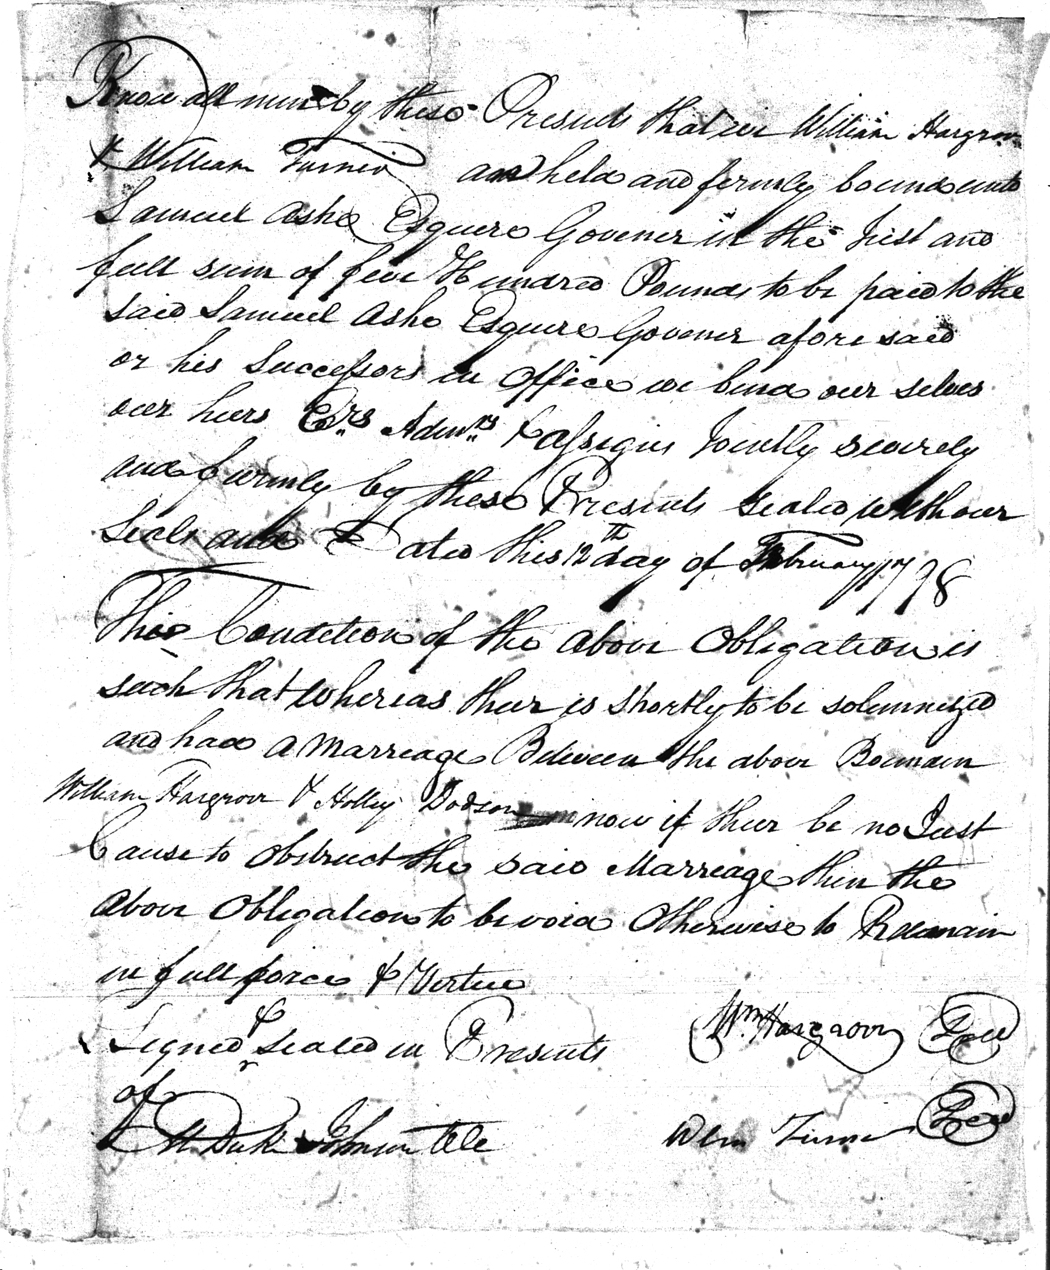 Know all men by these Presents that we William Hargrove
& William Turner are held and firmly bound unto
Samuel Ashe Esquere Govener in the Just and
full sum of five Hundred Pounds to be paid to the
said Samuel Ashe Esquere Govener afore said
or his Successors in office we bind our selves
our heirs Exrs Admrs & assigns Jointly severely
and firmly by these Presents sealed with our
Seals and Dated this 12th day of February 1798
The Condition of the above Obligation is
such that whereas their is shortly to be solemnized
and had a Marreage Between the above Bounden
William Hargrove & Holley Dodson now if their be no Just
Cause to obstruct the said Marreage then the
above Obligation to be void Otherwise to Remain
in full force & Vertue
Signed & Sealed in Presents Wm. Hargrove Seal
of
M. Duke Johnson CCC Wm Turner Seal